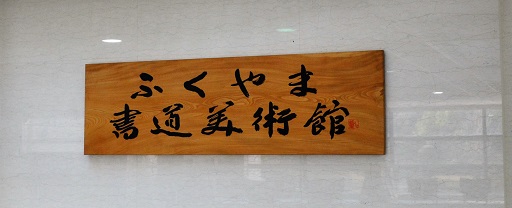 ふくやま
書道美術館